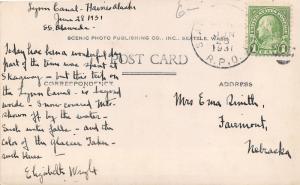 Lynn Canal - Haines Alaska
June 28 1931
SS. Alameda -
SCENIC PHOTO PUBLISHING CO., INC., SEATTLE, WASH.
POST CARD
CORRESPONDENCE
ADDRESS
Today has been a wonderful day
part of the time was spent in
Skagway - but this trip on
the Lynn Canal - is beyond
words - snow covered Mts
shown off by the water -
Such water falls - and the
color of the Glacier Taken
such blues
Elizabeth Wright
1931
R.P.O.
1
Mrs Ema Smith,
Fairmont,
Nebraska